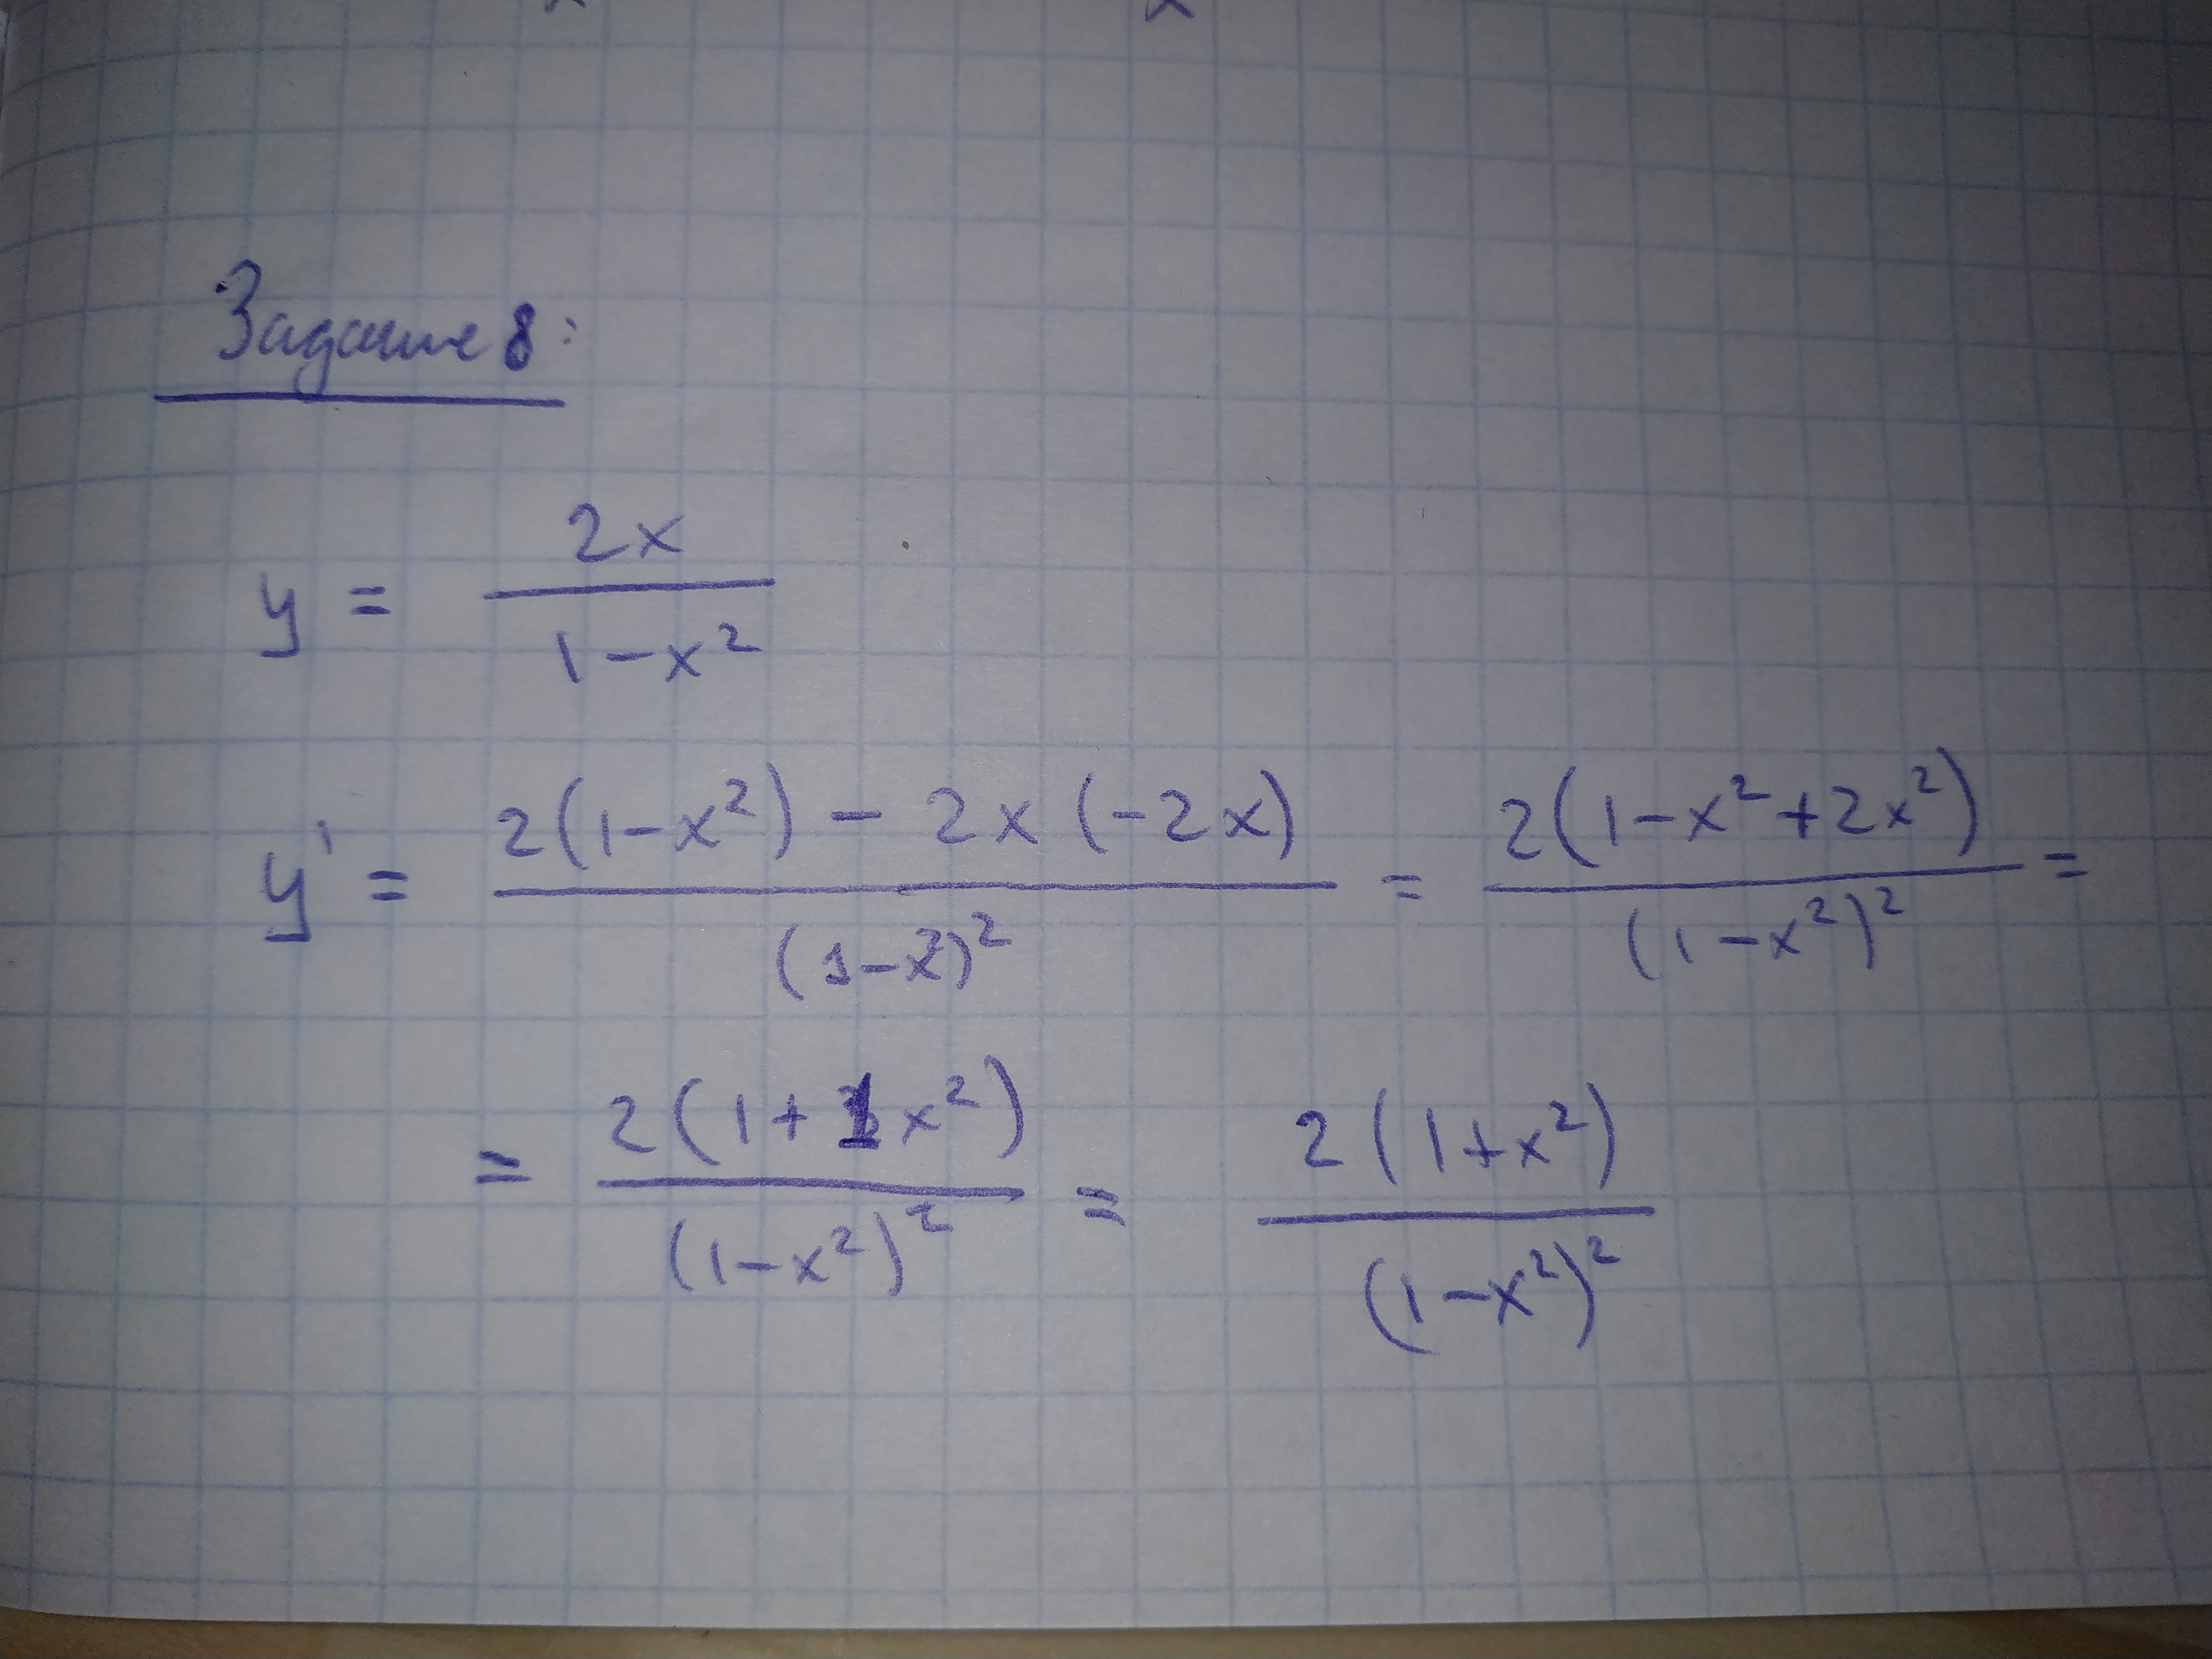 Задание 8:
y = 2x / 1-x²
y' = 2(1-x²) - 2x(-2x) / (1-2)² = 2(1-x²+2x²) / (1-x²)² =
= 2(1+1x²) / (1-x²)² = 2(1+x²) / (1-x²)²